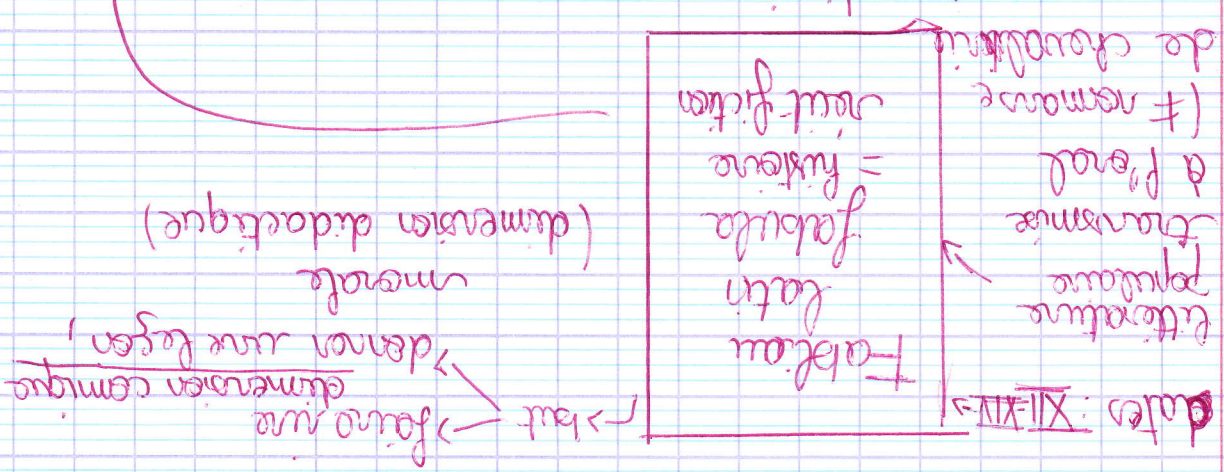 dates : XII-XIVe
litterature
populaire
transmise
à l'oral
(≠ romans
de chevalerie
Fabliau
latin
fabula
= histoire
récit-fiction
but
> faire rire
dimension comique
> donner une leçon,
morale
(dimension didactique)